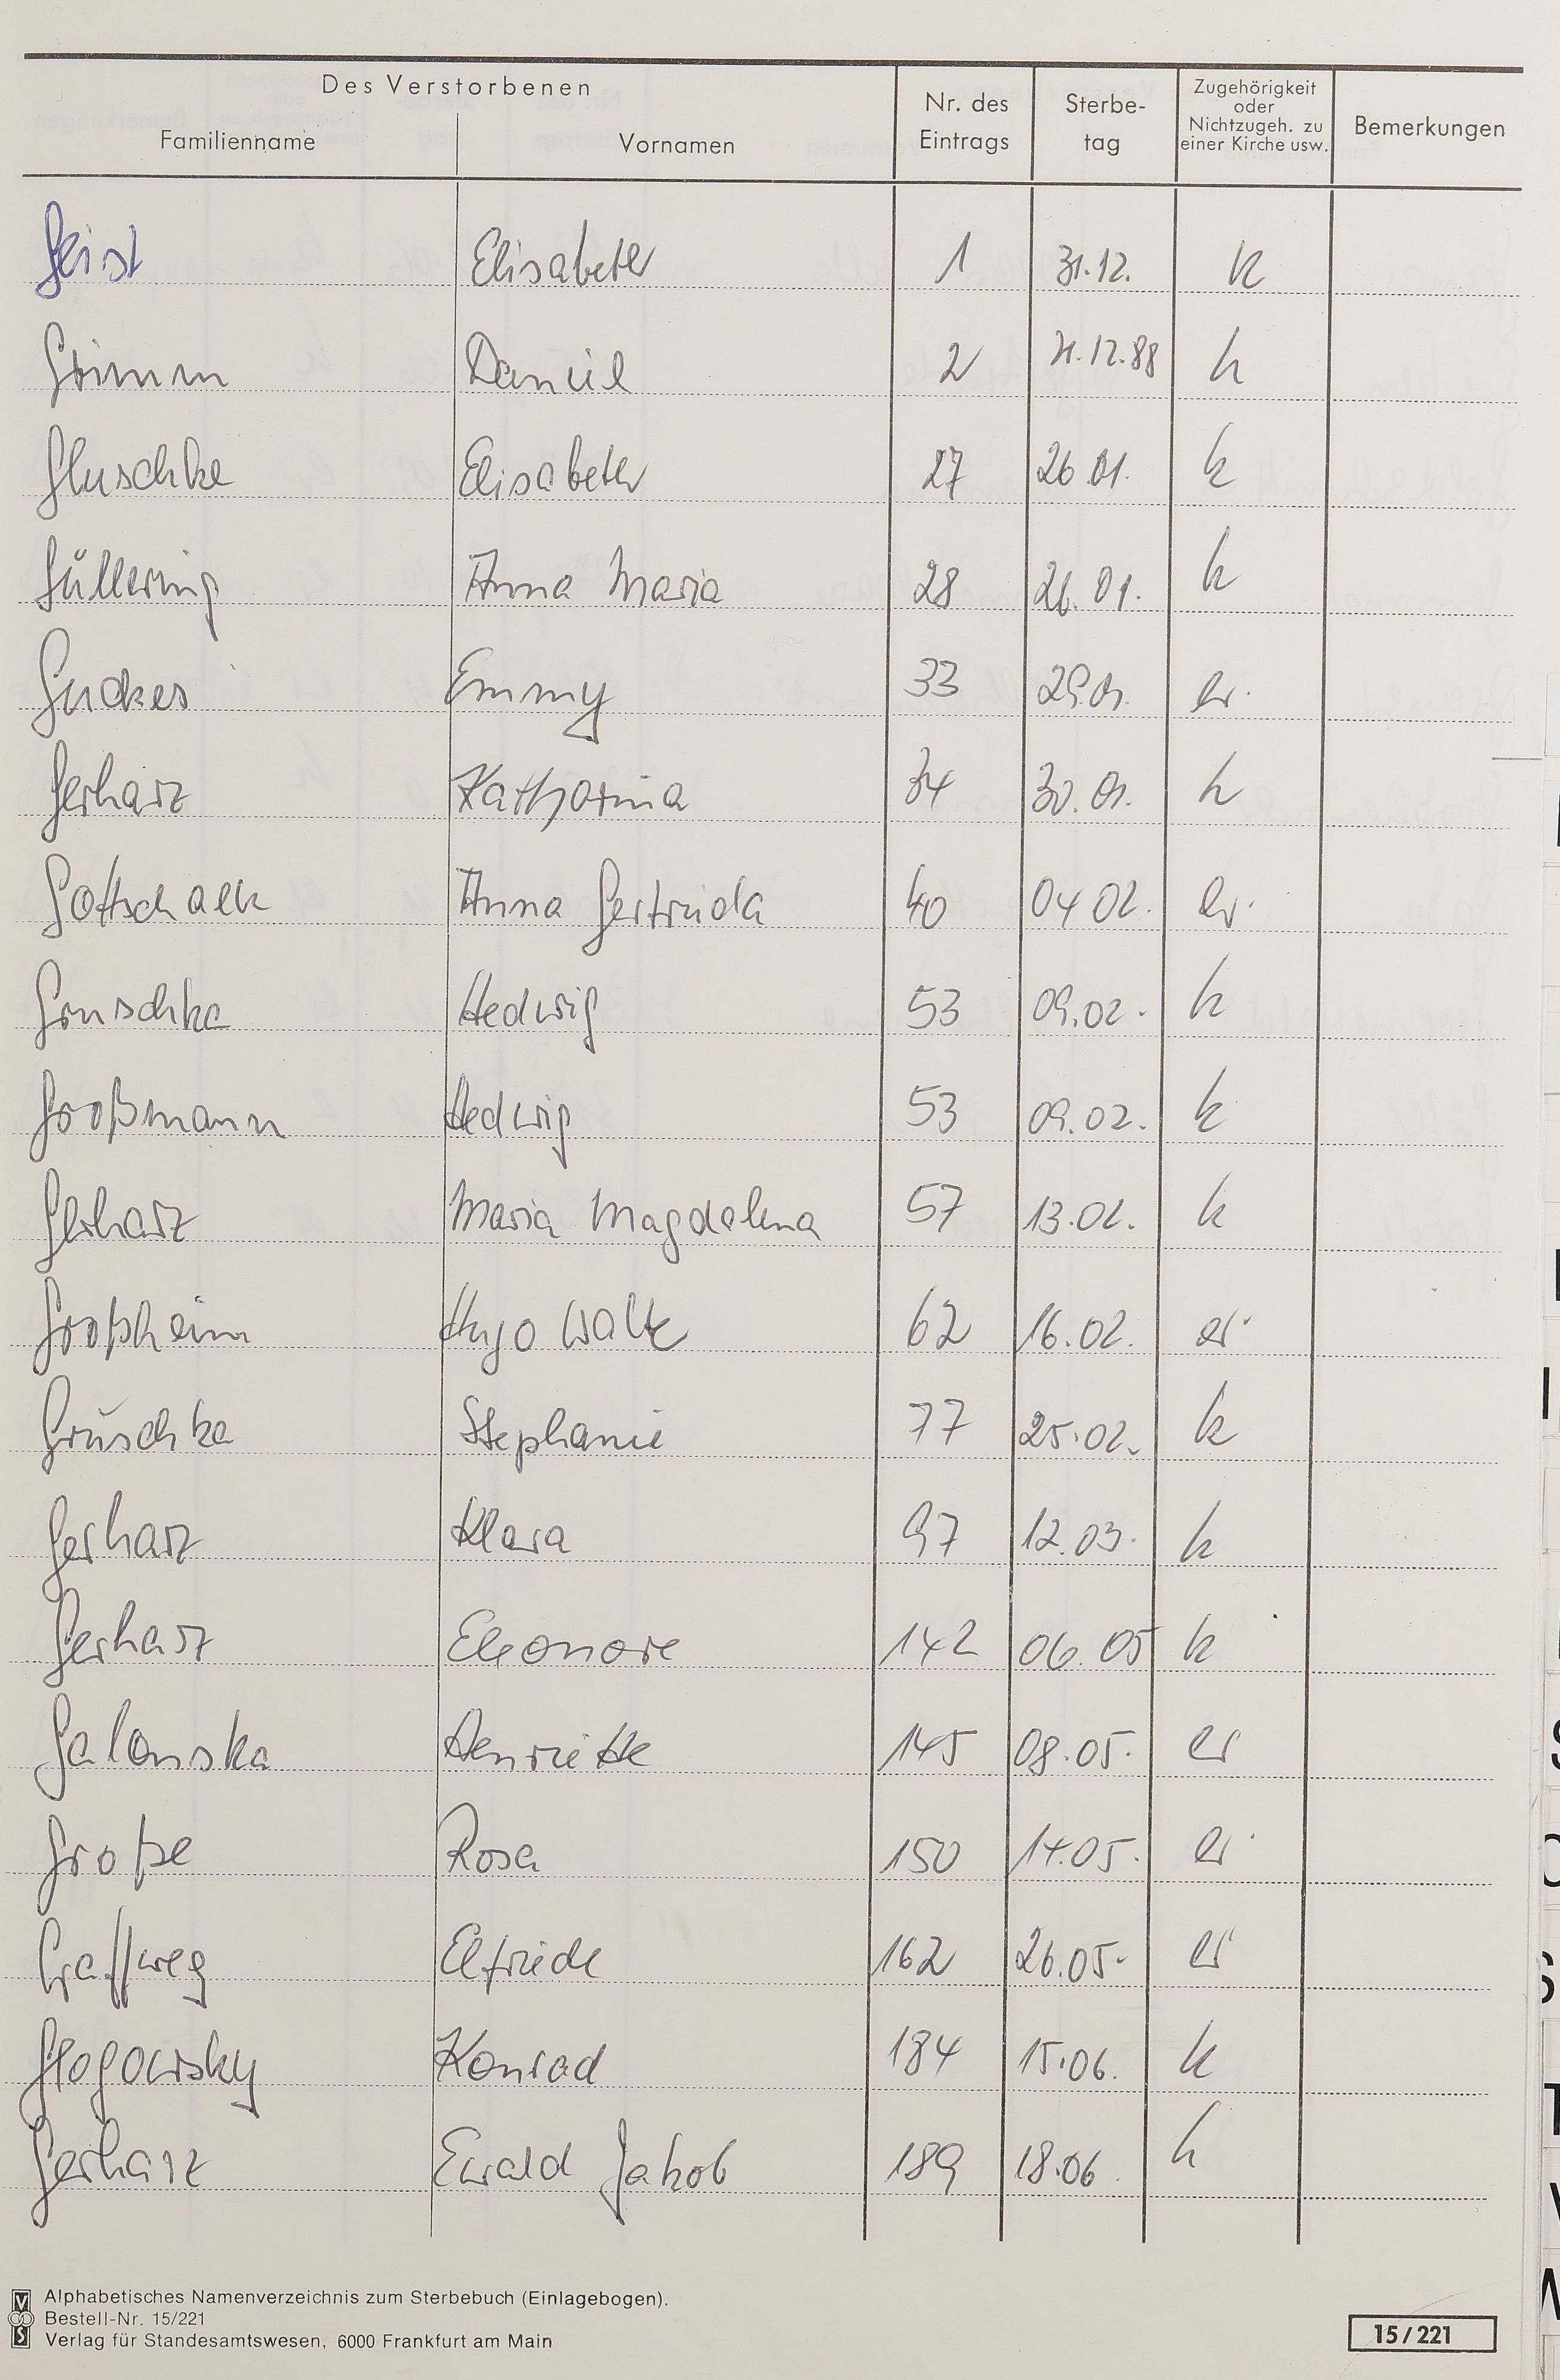 Des Verstorbenen
Familienname Vornamen Nr. des Eintrags Sterbe- tag Zugehörigkeit oder Nichtzugeh. zu einer Kirche usw. Bemerkungen
Geist Elisabeth 1 31.12. k
Grimm Daniel 2 31.12.88 k
Gluschke Elisabeth 27 26.01. k
Güllering Anna Maria 28 26.01. k
Guckes Emmy 33 29.01. ev.
Gerharz Katharina 34 30.01. k
Gottschalk Anna Gertruda 40 04 02. ev.
Gruschka Hedwig 53 09.02. k
Großmann Hedwig 53 09.02. k
Gerharz Maria Magdalena 57 13.02. k
Großheim Hugo 62 16.02. ev.
Gruschka Stephanie 77 25.02. k
Gerharz Klara 97 12.03. k
Gerharz Eleonore 142 06.05 k
Galonska Henriette 145 08.05. ev
Große Rosa 150 14.05. ev.
Graffweg Elfriede 162 26.05. ev
Glogowsky Konrad 184 15.06. k
Gerharz Ewald Jakob 189 18.06. k
Alphabetisches Namenverzeichnis zum Sterbebuch (Einlagebogen).
Bestell-Nr. 15/221
Verlag für Standesamtswesen, 6000 Frankfurt am Main
15/221